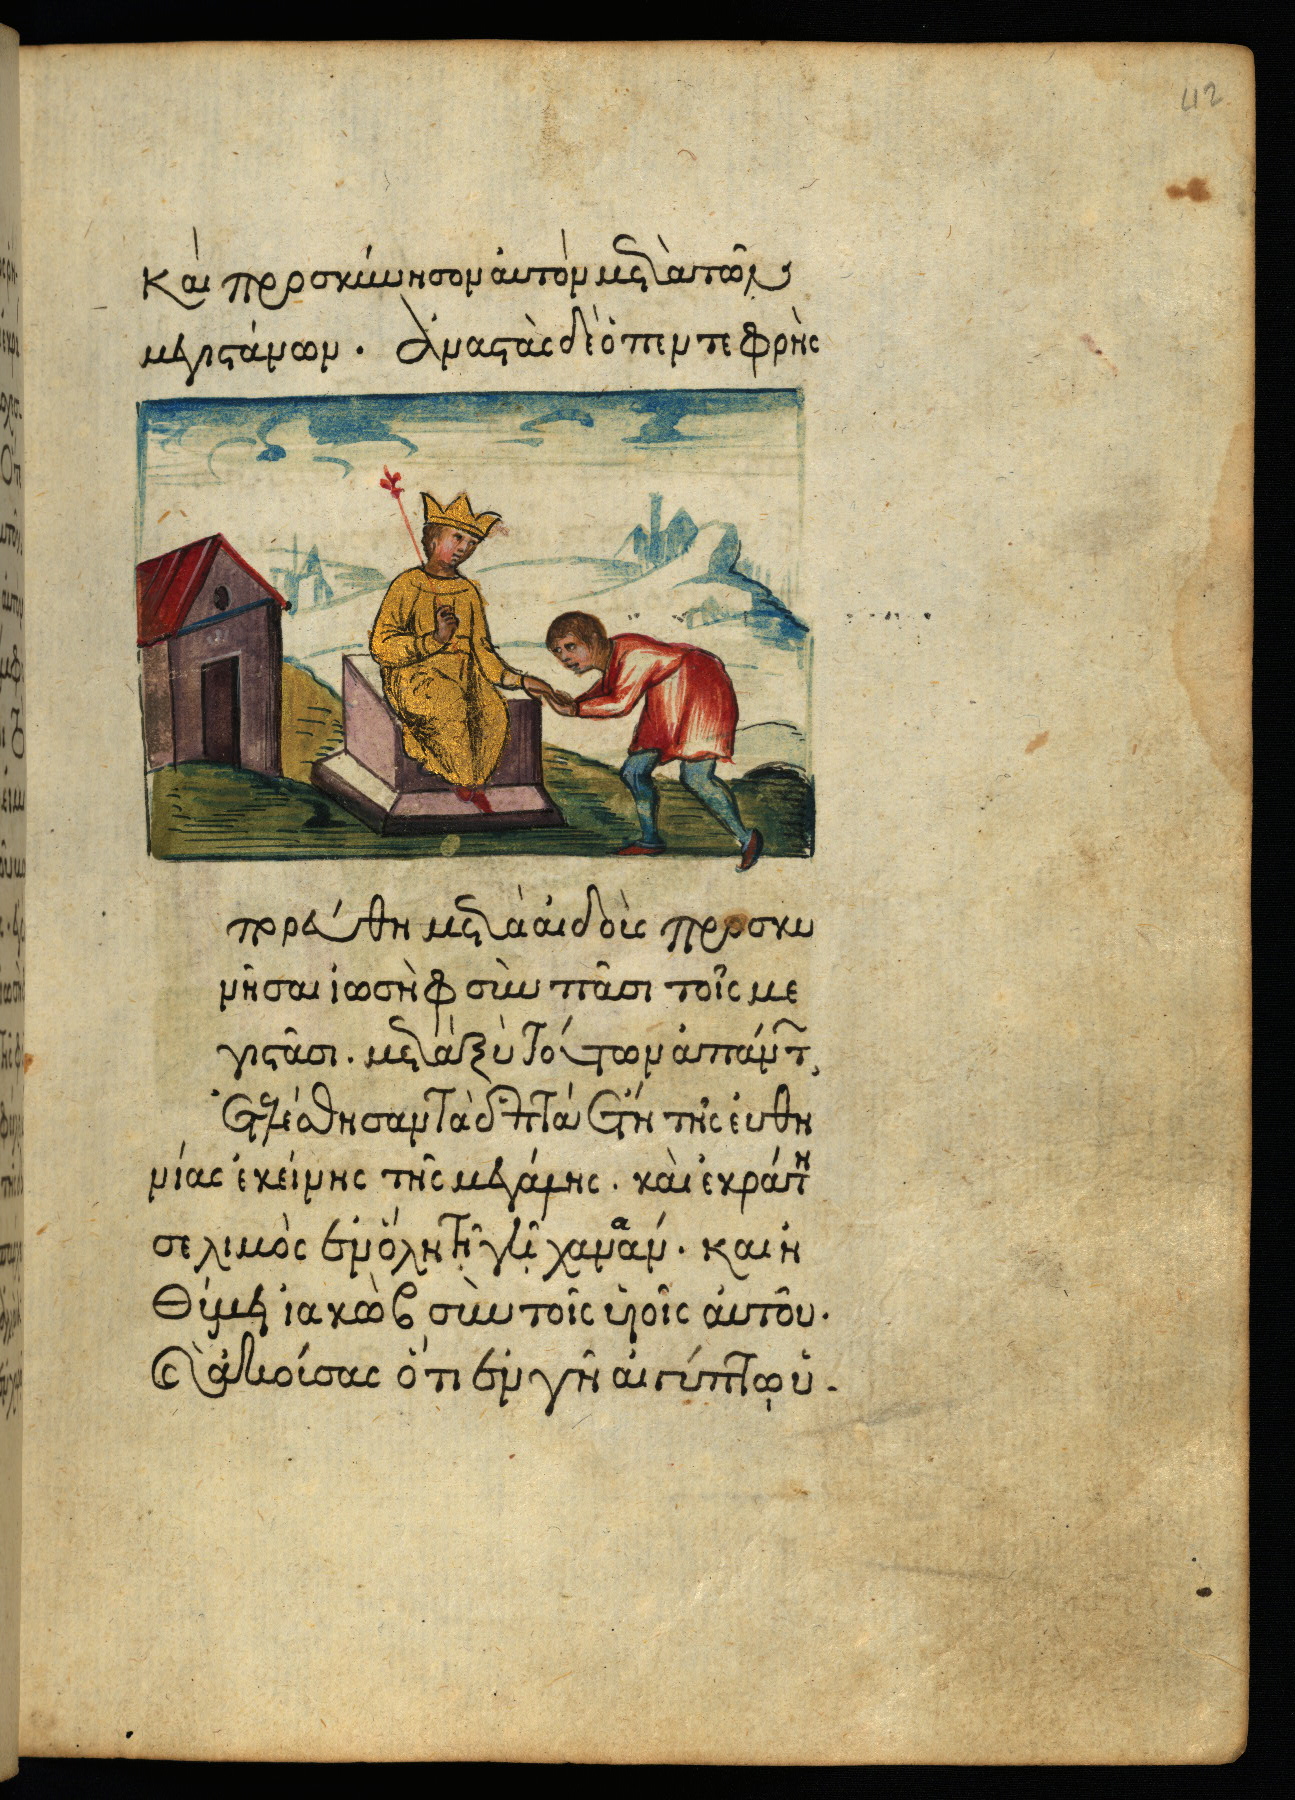 42
καὶ προσκύνησον αὐτὸν μετὰ τῶν
μεγιστάνων. Ἀναστὰς δὲ ὁ πεντεφρὴς
προσήχθη μετὰ αἰδοῦς προσκυ
νῆσαι ἰωσὴφ σὺν πᾶσι τοῖς με
γιστᾶσι. μετὰ τούτων ἁπάντ
τὰ ἑπτὰ ἔτη τῆς εὐθη
νίας ἐκείνης τῆς μεγάλης. καὶ ἐκράτη
σε λιμὸς ἐν ὅλη τῇ γῇ χαναάν. καὶ
ἰακὼβ σὺν τοῖς υἱοῖς αὐτοῦ.
ἀκούσας ὅτι ἐν γῇ αἰγύπτῳ